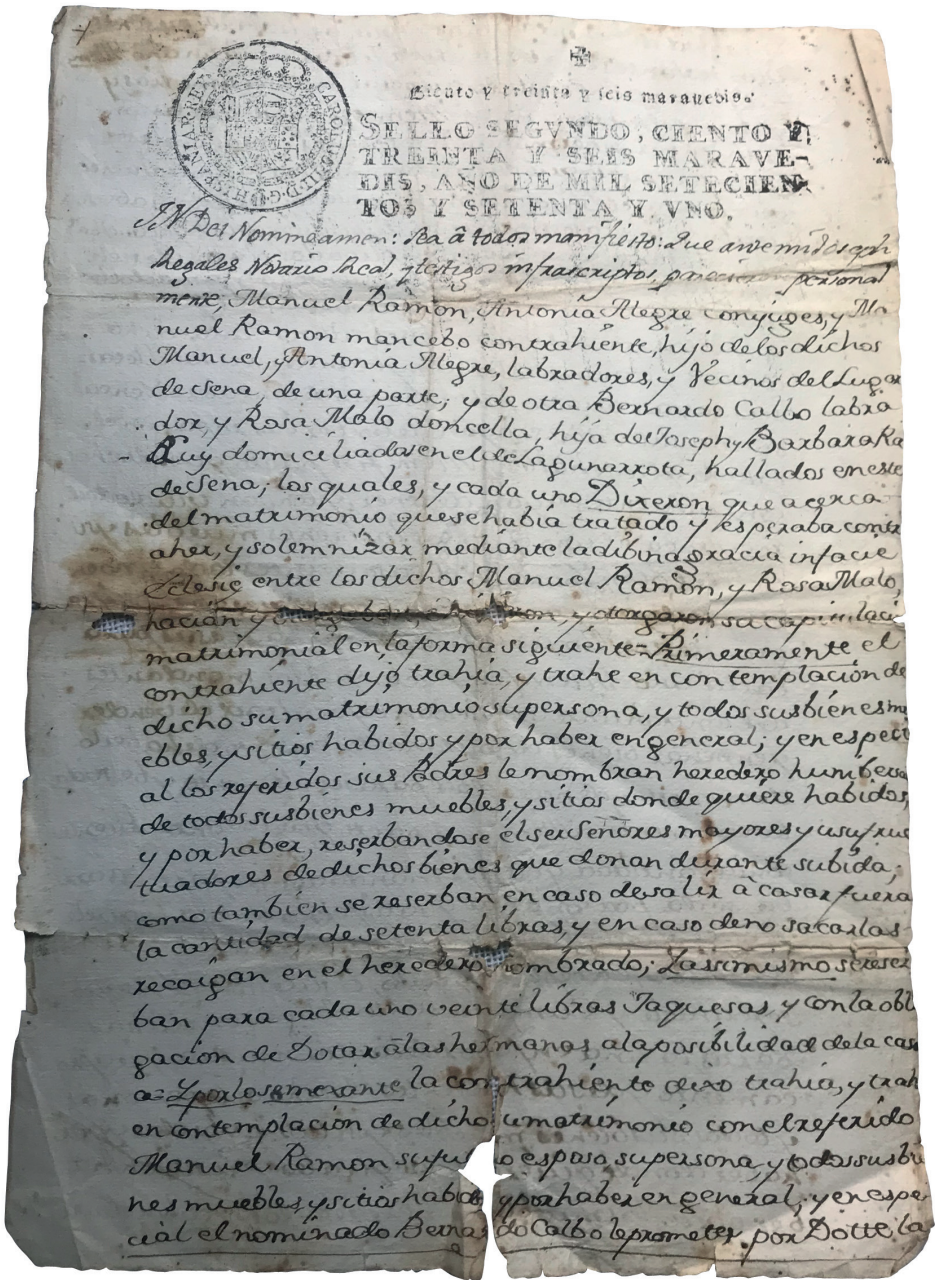 CAROLUS III D G HISPANIAR REX
Ciento y treinta y seis maravedis.
SELLO SEGVNDO, CIENTO Y
TREINTA Y SEIS MARAVE-
DIS, AÑO DE MIL SETECIEN-
TOS Y SETENTA Y VNO.
IN Dei Nomine amen: sea â todos manifiesto: Que ante mi Joseph
Regales Notario Real, y testigos infrascriptos, parecieron personal
mente, Manuel Ramon, Antonia Alegre conjuges, y Ma
nuel Ramon mancebo contrahiente, hijo de los dichos
Manuel, y Antonia Alegre, labradores, y Vecinos del Lugar
de Sena, de una parte; y de otra Bernardo Calbo labra
dor, y Rosa Malo doncella, hija de Joseph y Barbara Ra
Ruy domiciliados en el de Lagunarrota, hallados en este
de Sena; los quales, y cada uno Dixeron que acerca
del matrimonio que se había tratado y esperaba contr
aher, y solemnizar mediante la dibina gracia in facie
Eclesie entre los dichos Manuel Ramon, y Rosa Malo,
hacían y y otorgaron su capitulación
matrimonial en la forma siguiente= Primeramente el
contrahiente dijo trahía, y trahe en contemplación de
dicho su matrimonio su persona, y todos sus bienes mu
ebles, y sitios habidos y por haber en general; y en especi
al los referidos sus Padres le nombran heredero humbersa
de todos sus bienes muebles, y sitios donde quiere habidos,
y por haber, reserbandose el ser Señores mayores y usufruc
tuadores de dichos bienes que donan durante su bida;
como también se reserban en caso de salir â casar fuera
la cantidad de setenta libras, y en caso de no sacarlas
recaigan en el heredero nombrado; Y assimismo se reser
ban para cada uno veinte libras Jaquesas, y con la obli
gación de Dotar â las hermanas a la posibilidad de la cas
a= Y por lo semexante la contrahiente dixo trahía, y trah
en contemplación de dicho su matrimonio con el referido
Manuel Ramon su futuro esposo su persona, y todos sus bie
nes muebles, y sitios habidos y por haber en general; y en espe
cial el nominado Bernardo Calbo le promete por Dotte la